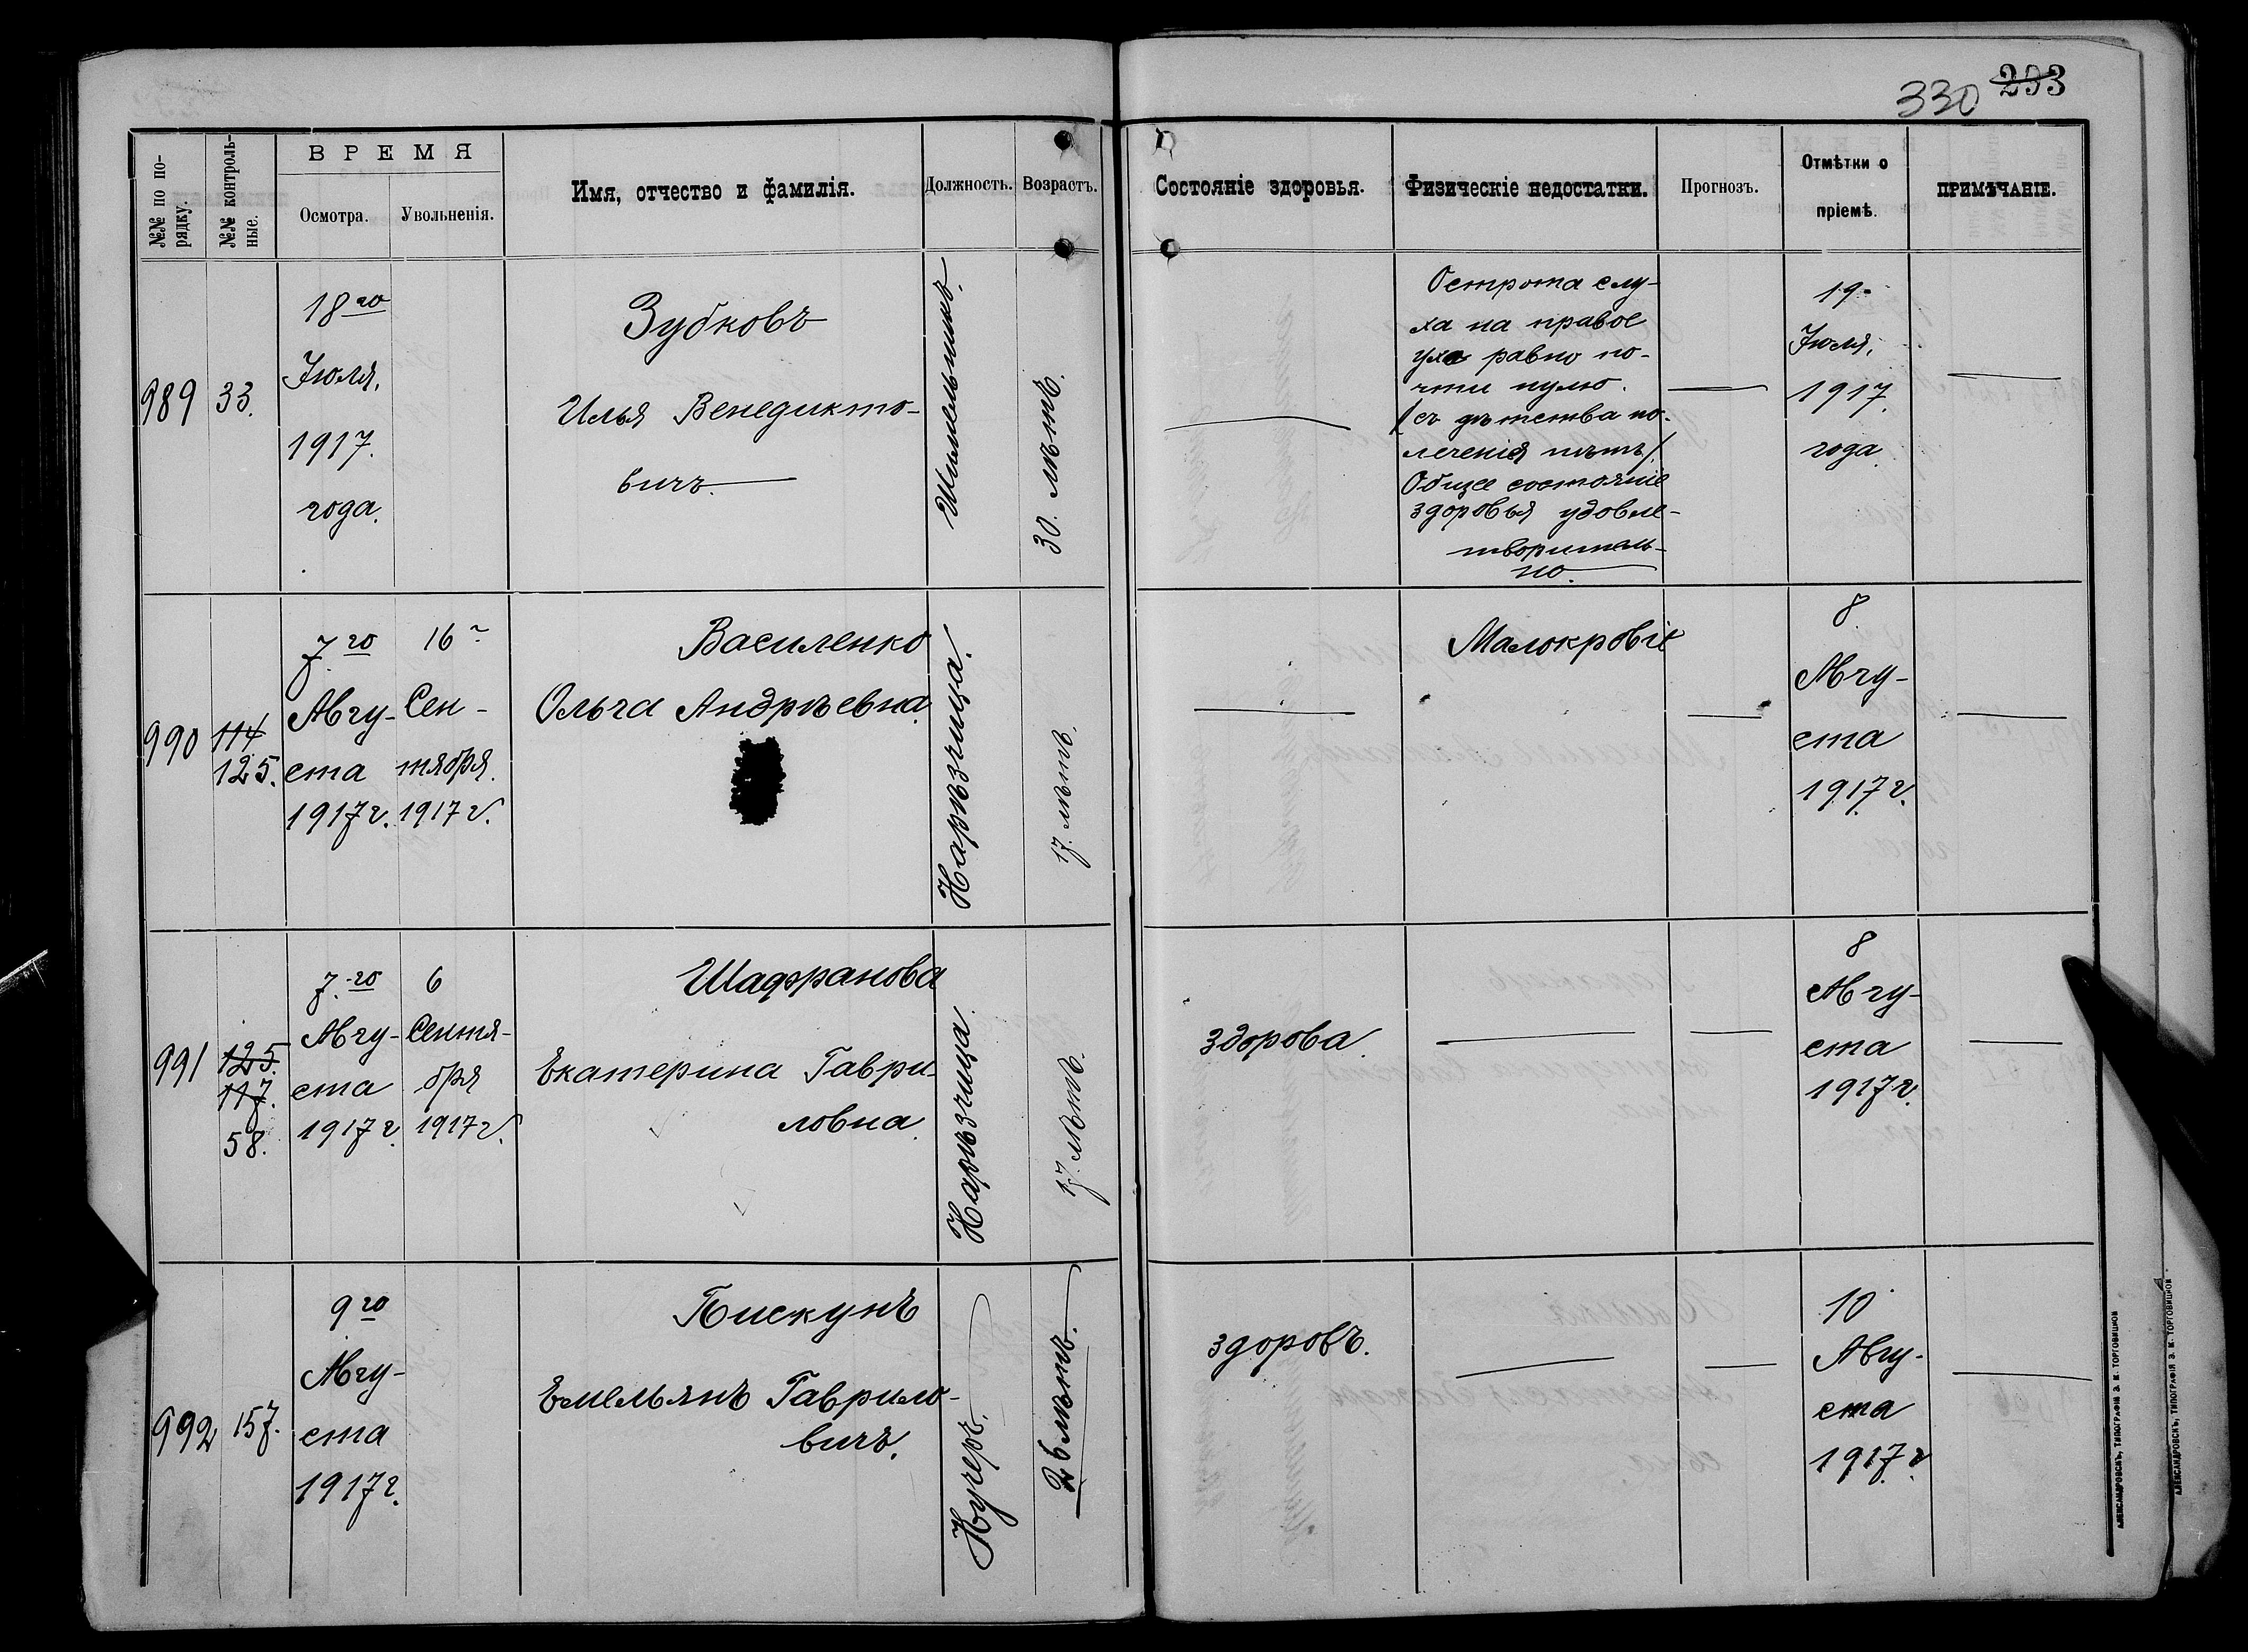 330 233
№№ по по-
рядку.
№№ контроль-
ные.
ВРЕМЯ
Осмотра.
Увольненія.
Имя, отчество и фамилія.
Должность.
Возрастъ.
Состояніе здоровья.
Физическіе недостатки.
Прогнозъ.
Отмѣтки о
пріемѣ.
ПРИМѢЧАНІЕ.
989
33.
18го
Іюля,
1917.
года.
Зубковъ
Илья Венедикто-
вичъ.
30. лѣтъ.
Острота слу-
ха на правое
ухо равно по-
чти нулю.
(съ дѣтства по-
леченія нѣтъ).
Общее состояніе
здоровья удовле-
творитель-
но.
19-
Іюля,
1917.
года.
990
114
125.
7.го
Авгу-
ста
1917г.
16
Сен-
тября.
1917г.
Василенко
Ольга Андрѣевна.
Нарѣзчица.
17. лѣтъ.
Малокровіе
8.
Авгу-
ста
1917г.
991
125.
117.
58.
7.го
Авгу-
ста
1917г.
6
Сентя-
бря
1917г.
Шафранова
Екатерина Гаври-
ловна.
Нарѣзчица.
17. лѣтъ.
здорова.
8
Авгу-
ста
1917г.
992
157.
9го
Авгу-
ста
1917г.
Пискунъ
Емельянъ Гаврило-
вичъ.
Кучеръ.
26 лѣтъ.
здоровъ.
10
Авгу-
ста
1917г.
АЛЕКСАНДРОВСКЪ, ТИПОГРАФІЯ Э. И. ТОРГОВИЦКОЙ
АЛЕКСАНДРОВСКЪ, ТИПОГРАФІЯ Э. И. ТОРГОВИЦКОЙ